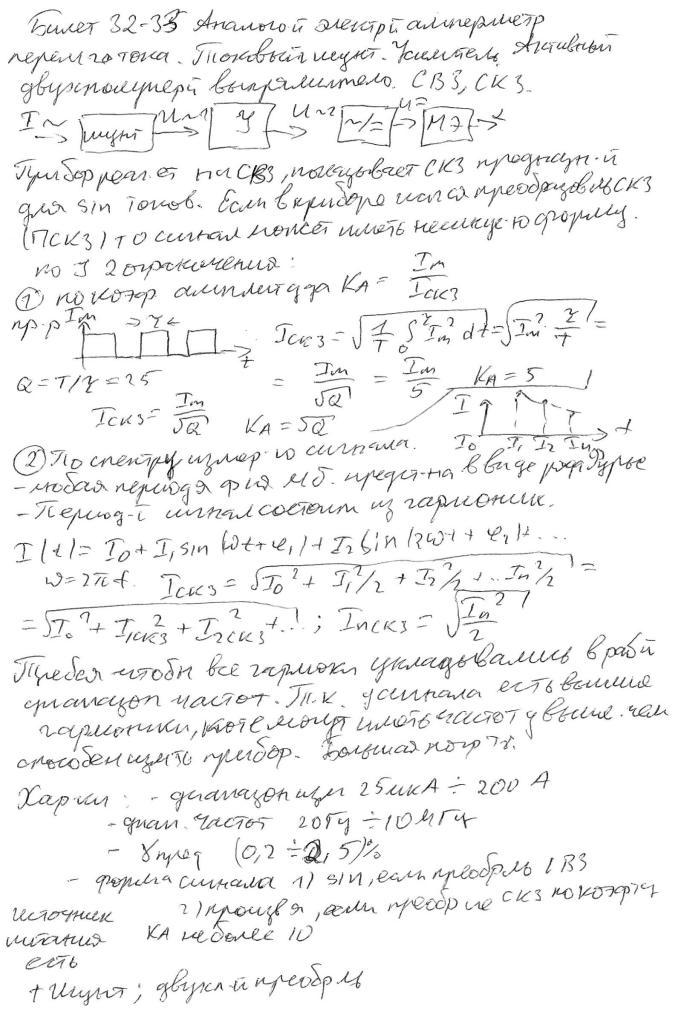 Билет 32-33 Аналогой электрй амперметр
перем го тока. Токовый шунт. Усилитель. Активный
двухполуперй выпрямитело. СВЗ, СКЗ.
I~ → шунт U~1 → У → U~2 → ~/= U= → МЭ → α
Прибор реаг.ет на СВЗ, показывает СКЗ
для sin токов. Если в приборе исп-ся преобразовль СКЗ
(ПСКЗ) то сигнал может иметь несинус-ю форму.
по У 2 ограничения:
① по коэф амплитуда KА = Im/Iскз
пр.р Im → τ ← t Iскз = √(1/T ∫₀^τ Im² dt) = √(Im² · τ/T) =
Q = T/τ = 25 = Im/√Q = Im/5 KА = 5
Iскз = Im/√Q KА = √Q I I₀ I₁ I₂ In f
② По спектру измер-го сигнала.
- любая периодя ф-ия м.б. предст-на в виде ряда Фурье
- Период-й сигнал состоит из гармоник.
I(t) = I₀ + I₁ sin(ωt+φ₁) + I₂ sin(2ωt + φ₂) + ...
ω = 2πf. Iскз = √(I₀² + I₁²/2 + I₂²/2 + ... In²/2) =
= √(I₀² + I₁скз² + I₂скз² + ...) ; Inскз = √(In²/2)
Требся чтобы все гармоки укладывались в рабй
диапазон частот. Т.к. у сигнала есть высшие
гармоники, котe могут иметь частоту выше чем
способен измть прибор. Большая погр γ.
Хар-ки: - диапазон изм 25мкА ÷ 200 А
- диап. частот 20Гц ÷ 10 МГц
- γ пред (0,2 ÷ 2,5)%
- форма сигнала 1) sin, если преобрль СВЗ
2) произвя, если преобр ле СКЗ по коэф
источник
питания КА не более 10
есть
+ Шунт; двукл-й преобрль